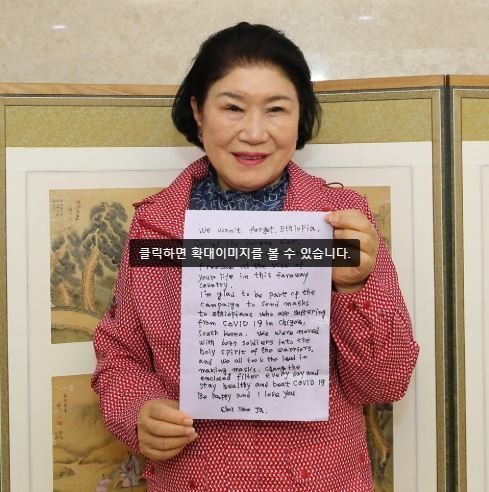 We won't forget, Ethiopia.
클릭하면 확대이미지를 볼 수 있습니다.
your life in this faraway
country.
I'm glad to be part of the
campaign to send masks
to Ethiopians who are suffering
from COVID 19 in
South Korea. We were moved
with boas soldiers into the
holy spirit of the warriors,
and we all took the lead in
making masks. Change the
enclosed filter every day and
stay healthy and beat COVID 19
Be happy and I love you